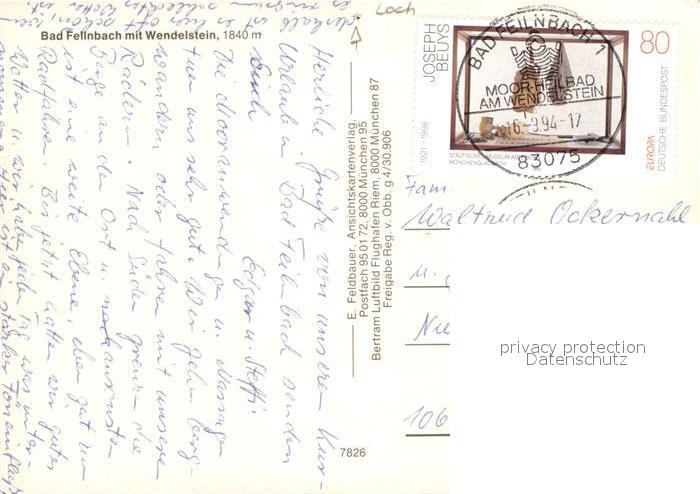 Bad Feilnbach mit Wendelstein, 1840 m
Herzliche Grüße von unserem Kur-
Urlaub in Bad Feilnbach senden
Euch Edgar u. Steffi.
Die Mooranwendungen u. Massagen
tun uns sehr gut. Wir gehen berg-
wandern oder fahren mit unseren
Rädern. Nach Süden grenzen die
Berge an den Ort u. nach
ist eine weite Ebene, eben gut zum
Radfahren. Bis jetzt hatten wir gutes
Wetter u. wir haben jeden Tag was unter-
Hier ist ein starker Föneinfluß
E. Feldbauer, Ansichtskartenverlag,
Postfach 95 01 72, 8000 München 95
Bertram Luftbild Flughafen Riem, 8000 München 87
Freigabe Reg. v. Obb. g 4/30.906
7826
Loch
JOSEPH
BEUYS
1921 - 1986
80
EUROPA
DEUTSCHE BUNDESPOST
STÄDTISCHES MUSEUM
MÖNCHENGLADBACH
BAD FEILNBACH 1
MOOR-HEILBAD
AM WENDELSTEIN
16.-9.94-17
83075
Fam.
Waltrud Ockernahl
u.
Nie
106
privacy protection
Datenschutz